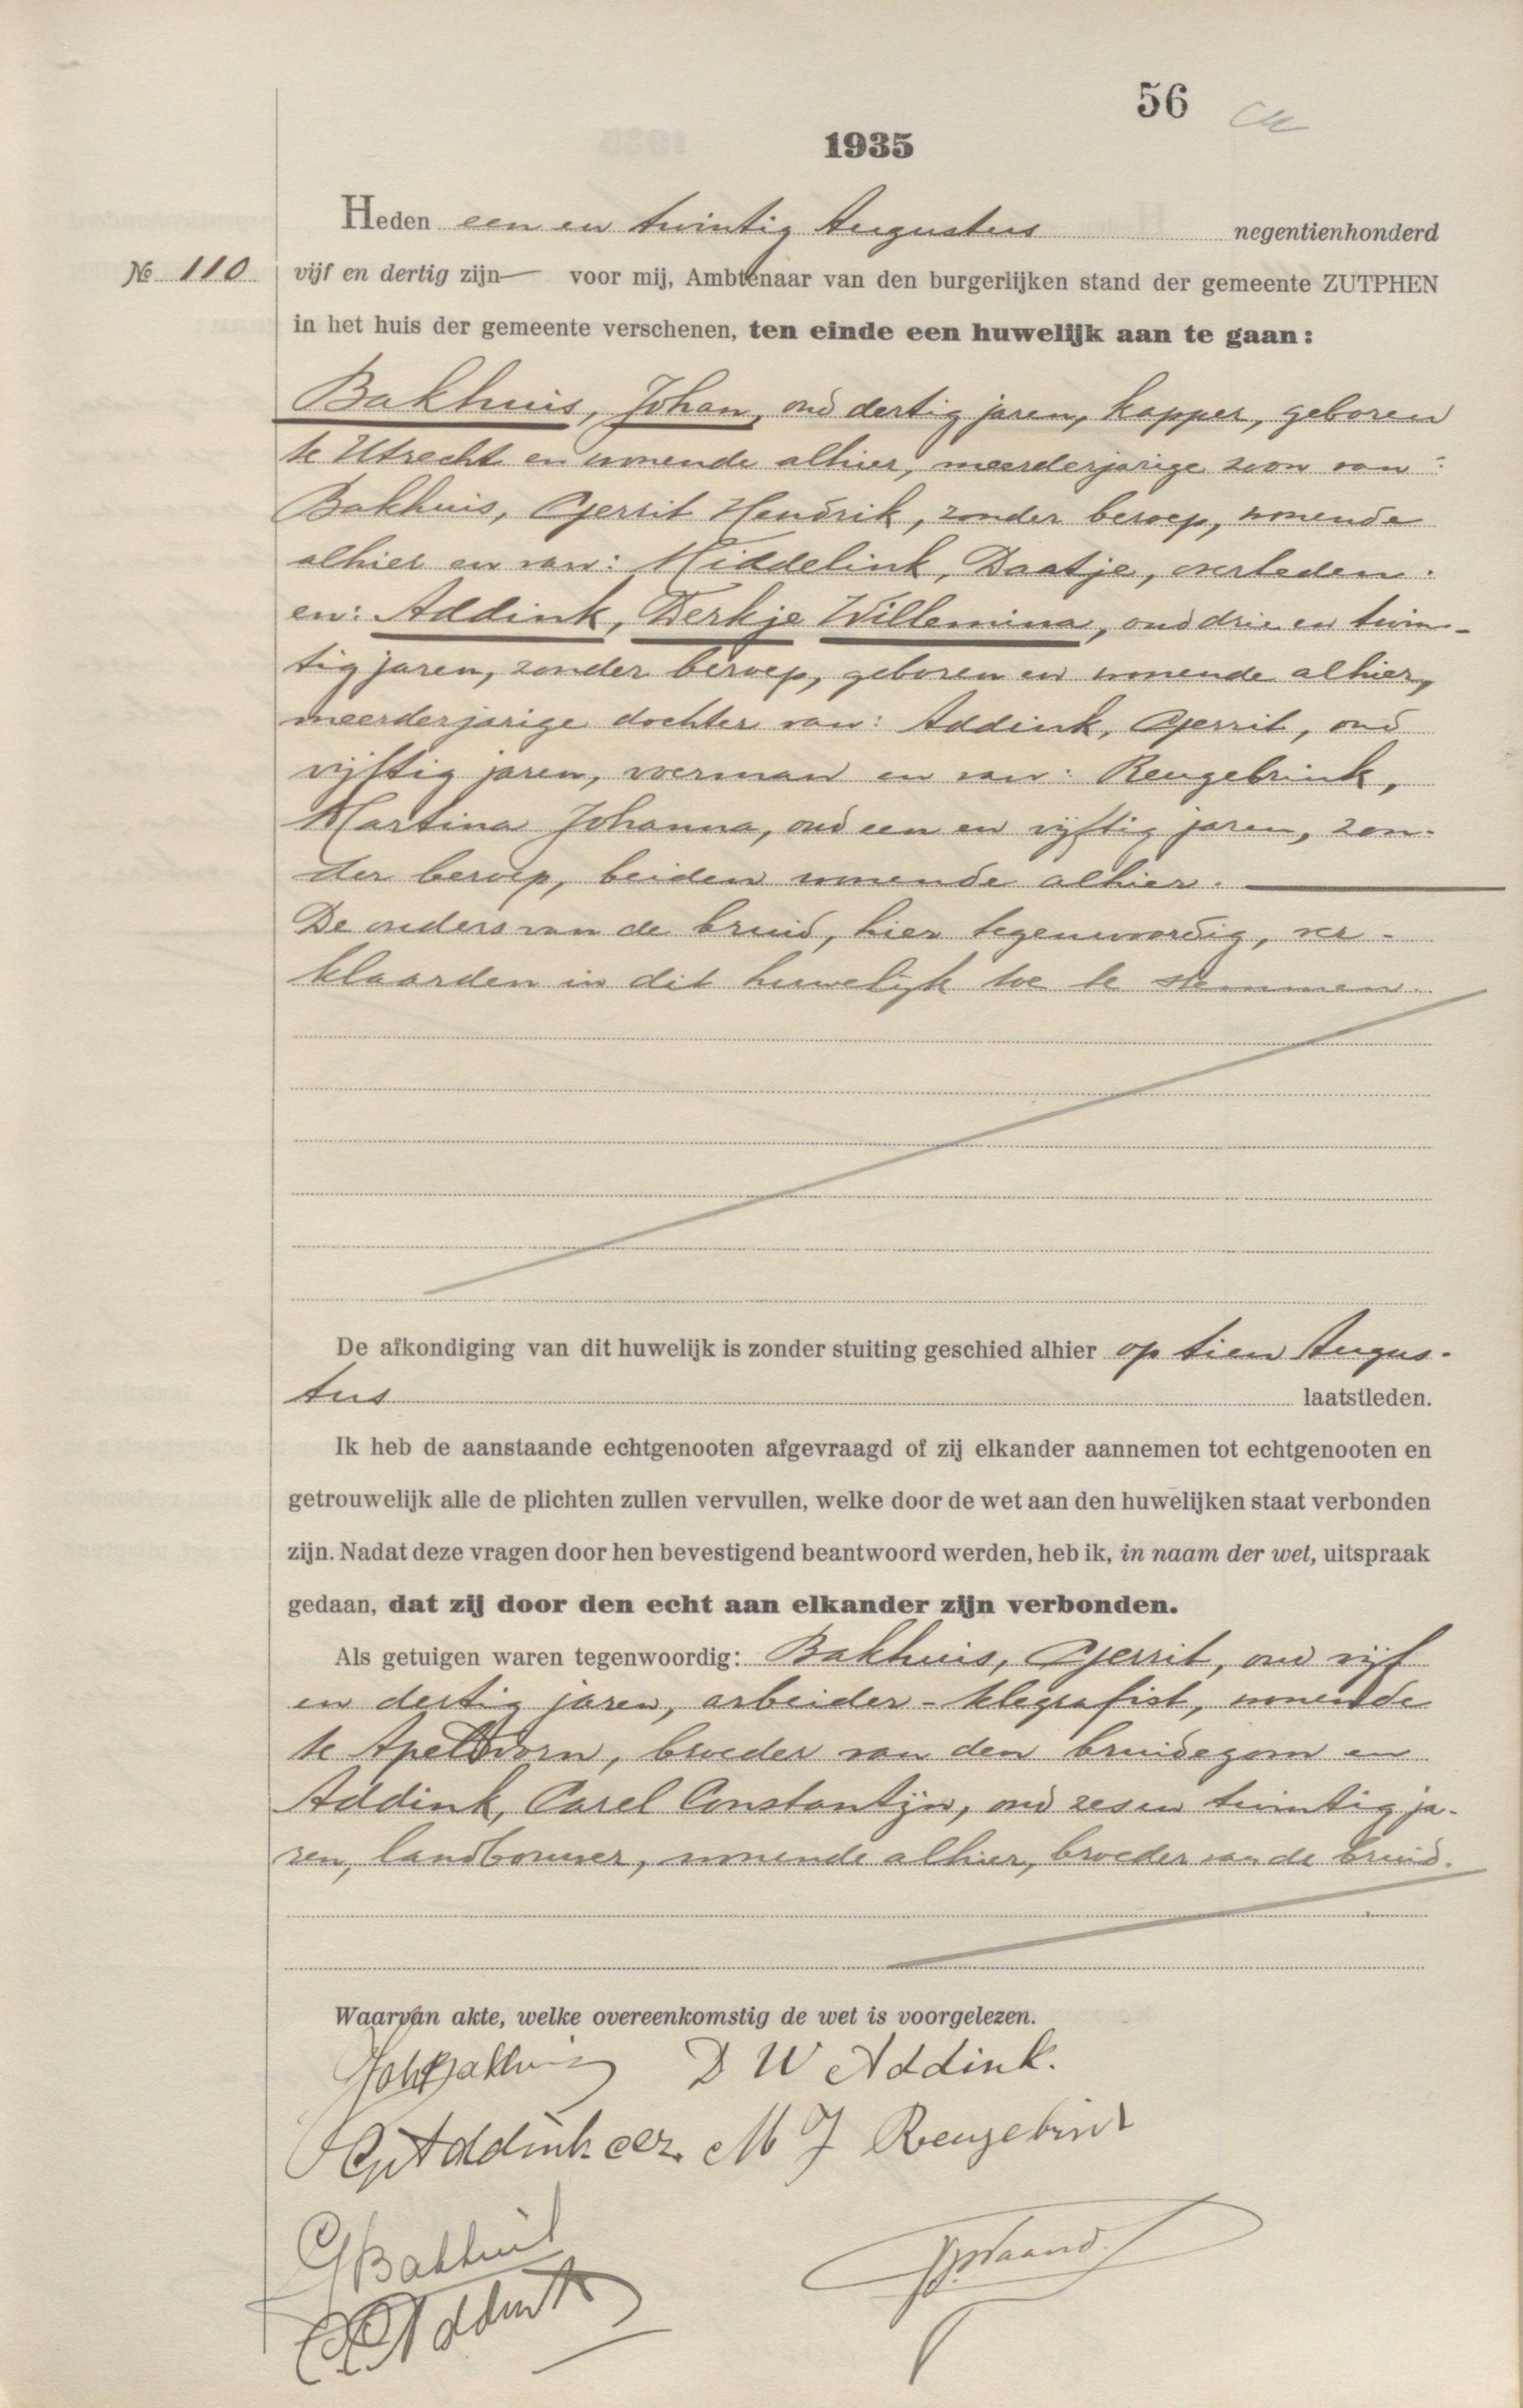 56
1935
Heden een en twintig Augustus negentienhonderd
№ 110 vijf en dertig zijn— voor mij, Ambtenaar van den burgerlijken stand der gemeente ZUTPHEN
in het huis der gemeente verschenen, ten einde een huwelijk aan te gaan:
Bakhuis, Johan, oud dertig jaren, kapper, geboren
te Utrecht en wonende alhier, meerderjarige zoon van:
Bakhuis, Gerrit Hendrik, zonder beroep, wonende
alhier en van: Middelink, Daatje, overleden.
en: Addink, Derkje Willemina, oud drie en twin-
tig jaren, zonder beroep, geboren en wonende alhier,
meerderjarige dochter van: Addink, Gerrit, oud
vijftig jaren, voerman en van: Reugebrink,
Martina Johanna, oud een en vijftig jaren, zon-
der beroep, beiden wonende alhier.
De ouders van de bruid, hier tegenwoordig, ver-
klaarden in dit huwelijk toe te stemmen.
De afkondiging van dit huwelijk is zonder stuiting geschied alhier op tien Augus-
tus laatstleden.
Ik heb de aanstaande echtgenooten afgevraagd of zij elkander aannemen tot echtgenooten en
getrouwelijk alle de plichten zullen vervullen, welke door de wet aan den huwelijken staat verbonden
zijn. Nadat deze vragen door hen bevestigend beantwoord werden, heb ik, in naam der wet, uitspraak
gedaan, dat zij door den echt aan elkander zijn verbonden.
Als getuigen waren tegenwoordig: Bakhuis, Gerrit, oud vijf
en dertig jaren, arbeider-telegrafist, wonende
te Apeldoorn, broeder van den bruidegom en
Addink, Carel Constantijn, oud zes en twintig ja-
ren, landbouwer, wonende alhier, broeder van de bruid.
Waarvan akte, welke overeenkomstig de wet is voorgelezen.
Joh Bakhuis D W Addink.
G Addink ccz. M J Reugebrink
G Bakhuis
CC Addink